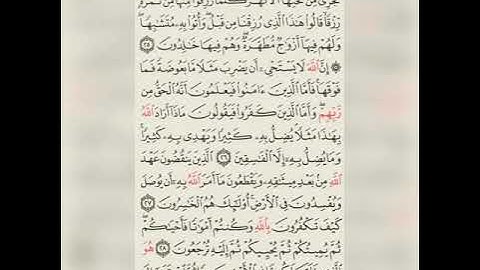 تَجْرِى مِن تَحْتِهَا ٱلْأَنْهَٰرُ كُلَّمَا رُزِقُوا۟ مِنْهَا مِن ثَمَرَةٍ
رِّزْقًا قَالُوا۟ هَٰذَا ٱلَّذِى رُزِقْنَا مِن قَبْلُ وَأُتُوا۟ بِهِۦ مُتَشَٰبِهًا
وَلَهُمْ فِيهَآ أَزْوَٰجٌ مُّطَهَّرَةٌ وَهُمْ فِيهَا خَٰلِدُونَ ٢٥
۞ إِنَّ ٱللَّهَ لَا يَسْتَحْىِۦٓ أَن يَضْرِبَ مَثَلًا مَّا بَعُوضَةً فَمَا
فَوْقَهَا فَأَمَّا ٱلَّذِينَ ءَامَنُوا۟ فَيَعْلَمُونَ أَنَّهُ ٱلْحَقُّ مِن
رَّبِّهِمْ وَأَمَّا ٱلَّذِينَ كَفَرُوا۟ فَيَقُولُونَ مَاذَآ أَرَادَ ٱللَّهُ
بِهَٰذَا مَثَلًا يُضِلُّ بِهِۦ كَثِيرًا وَيَهْدِى بِهِۦ كَثِيرًا
وَمَا يُضِلُّ بِهِۦٓ إِلَّا ٱلْفَٰسِقِينَ ٢٦ ٱلَّذِينَ يَنقُضُونَ عَهْدَ
ٱللَّهِ مِنۢ بَعْدِ مِيثَٰقِهِۦ وَيَقْطَعُونَ مَآ أَمَرَ ٱللَّهُ بِهِۦٓ أَن يُوصَلَ
وَيُفْسِدُونَ فِى ٱلْأَرْضِ أُو۟لَٰٓئِكَ هُمُ ٱلْخَٰسِرُونَ ٢٧
كَيْفَ تَكْفُرُونَ بِٱللَّهِ وَكُنتُمْ أَمْوَٰتًا فَأَحْيَٰكُمْ
ثُمَّ يُمِيتُكُمْ ثُمَّ يُحْيِيكُمْ ثُمَّ إِلَيْهِ تُرْجَعُونَ ٢٨ هُوَ